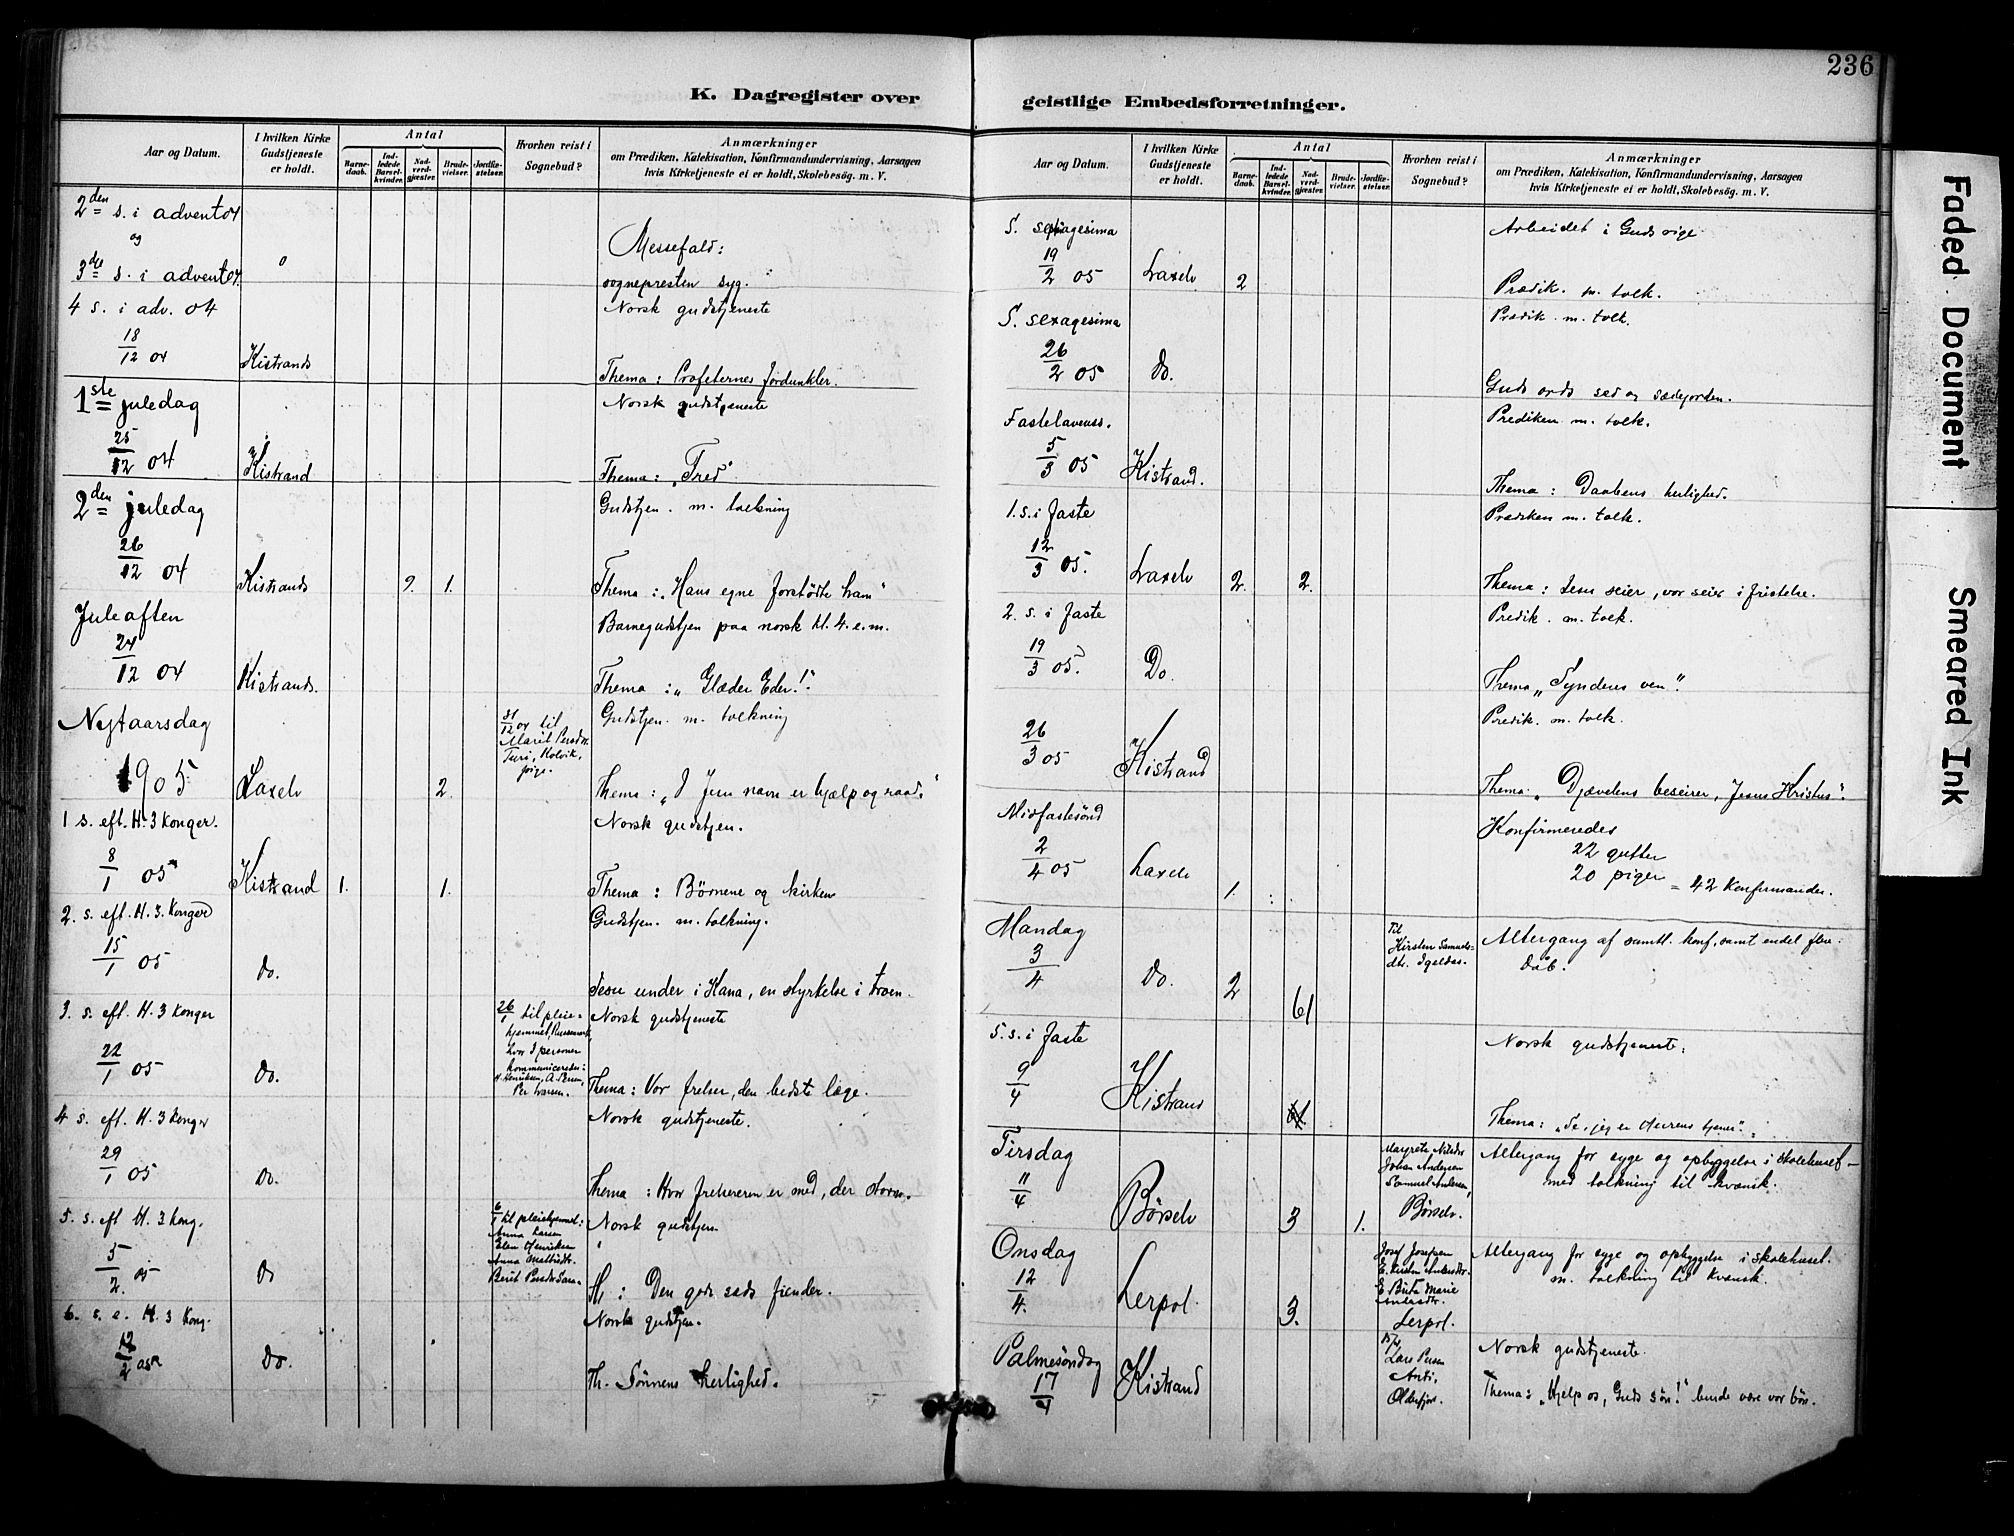 236
K. Dagregister over
Aar og Datum.
I hvilken Kirke Gudstjeneste er holdt.
Antal
Barne-daab.
Ind-ledede Barsel-kvinder.
Nad-verd-gjæster.
Brude-vielser.
Jordfæ-stelser.
Hvorhen reist i Sognebud?
Anmærkninger
om Prædiken, Katekisation, Konfirmandundervisning, Aarsagen
hvis Kirketjeneste ei er holdt, Skolebesøg. m. V.
2den s. i advent 04
og
3de s. i advent 04.
0
Messefald:
sognepresten syg.
4 s. i adv. 04
18/12 04
Kistrand
Norsk gudstjeneste
Thema: Profeternes fordunkler.
1ste juledag
25/12 04
Kistrand
Norsk gudstjeneste
Thema: „Fred"
2den juledag
26/12 04
Kistrand
9. 1.
Gudstjen. m. tolkning
Thema: „Hans egne forstødte ham"
Juleaften
24/12 04
Kistrand.
Barnegudstjen paa norsk kl. 4. e. m.
Thema: „Glæder Eder!"
Nytaarsdag
1905
Laxelv
2.
31/12 04 til
Marit Persdr.
Turi, Kolvik,
pige.
Gudstjen. m. tolkning
Thema: „I Jesu navn er hjælp og raad."
1 s. eft. H. 3 Konger.
8/1 05
Kistrand
1. 1.
Norsk gudstjen.
Thema: Børnene og kirken
2. s. eft. H. 3. Konger
15/1 05
Do.
Gudstjen. m. tolkning.
Jesu under i Kana, en styrkelse i troen.
3. s. eft. H. 3 Konger
22/1 05
Do.
26/1 til pleie-
hjemmet,
hvor 3 personer
kommunicerede:
H. Henriksen, A. Persen,
Per Larsen.
Norsk gudstjeneste
Thema: Vor frelser, den bedste læge.
4 s. eft. H. 3 Konger
29/1 05
Do.
Norsk gudstjeneste.
Thema: Hvor frelseren er med, der storm.
5. s. eft H. 3 Kong.
5/2. 05
Do
6/1 til pleiehjemmet:
Anna Larsen
Elen Henriksen
Anna
Berit Persdr Sara.
Norsk gudstjen.
Th: Den gode sæds fiender.
6. s. e. H. 3 Kong.
12/2 05
Do.
Norsk gudstjen.
Th. Sønnens herlighed.
geistlige Embedsforretninger.
Aar og Datum.
I hvilken Kirke Gudstjeneste er holdt.
Antal
Barne-daab.
Ind-ledede Barsel-kvinder.
Nad-verd-gjæster.
Brude-vielser.
Jordfæ-stelser.
Hvorhen reist i Sognebud?
Anmærkninger
om Prædiken, Katekisation, Konfirmandundervisning, Aarsagen
hvis Kirketjeneste ei er holdt, Skolebesøg. m. V.
S. septuagesima
19/2 05
Laxelv
2
Arbeidet i Guds rige
Prædik. m. tolk.
S. sexagesima
26/2 05
Do.
Prædik. m. tolk.
Guds ords sæd og sædejorden.
Fastelavenss.
5/3 05
Kistrand.
Prediken m. tolk.
Thema: Daabens herlighed.
1. s. i faste
12/3 05.
Laxelv
2. 2.
Prædiken m. tolk.
Thema: Jesu seier, vor seier i fristelse.
2. s. i faste
19/3 05.
Do.
Predik. m. tolk.
Thema „Synderes ven".
26/3 05
Kistrand
Predik. m. tolk.
Thema „Djævelens beseirer, Jesus Kristus".
Midfastesønd
2/4 05
Laxelv
1.
Konfirmeredes
22 gutter
20 piger = 42 Konfirmander.
Mandag
3/4
Do.
2 61
Til
Kirsten Samuels-
dtr. Igeldas.
Altergang af samtl. konf. samt endel flere.
Daab.
5. s. i faste
9/4
Kistrand
Norsk gudstjeneste:
Thema: „Se, jeg er Herrens tjener".
Tirsdag
11/4
Børselv
3 1.
Margrete Nilsdr
Johan Andersen
Samuel Andersen,
Børselv.
Altergang for syge og opbyggelse i skolehuset
med tolkning til kvænsk.
Onsdag
12/4.
Lerpol.
3.
Josef Josefsen
E. Kirsten Andersdtr.
E Brita Marie
Andersdtr.
Lerpol.
Altergang for syge og opbyggelse i skolehuset.
m. tolkning til kvænsk.
Palmesøndag
17/4
Kistrand
15/4
Lars Persen
Anti,
Olderfjor.
Norsk gudstjeneste.
Thema: „Hjelp os, Guds søn!" burde være vor bøn.
Faded Document
Smeared Ink